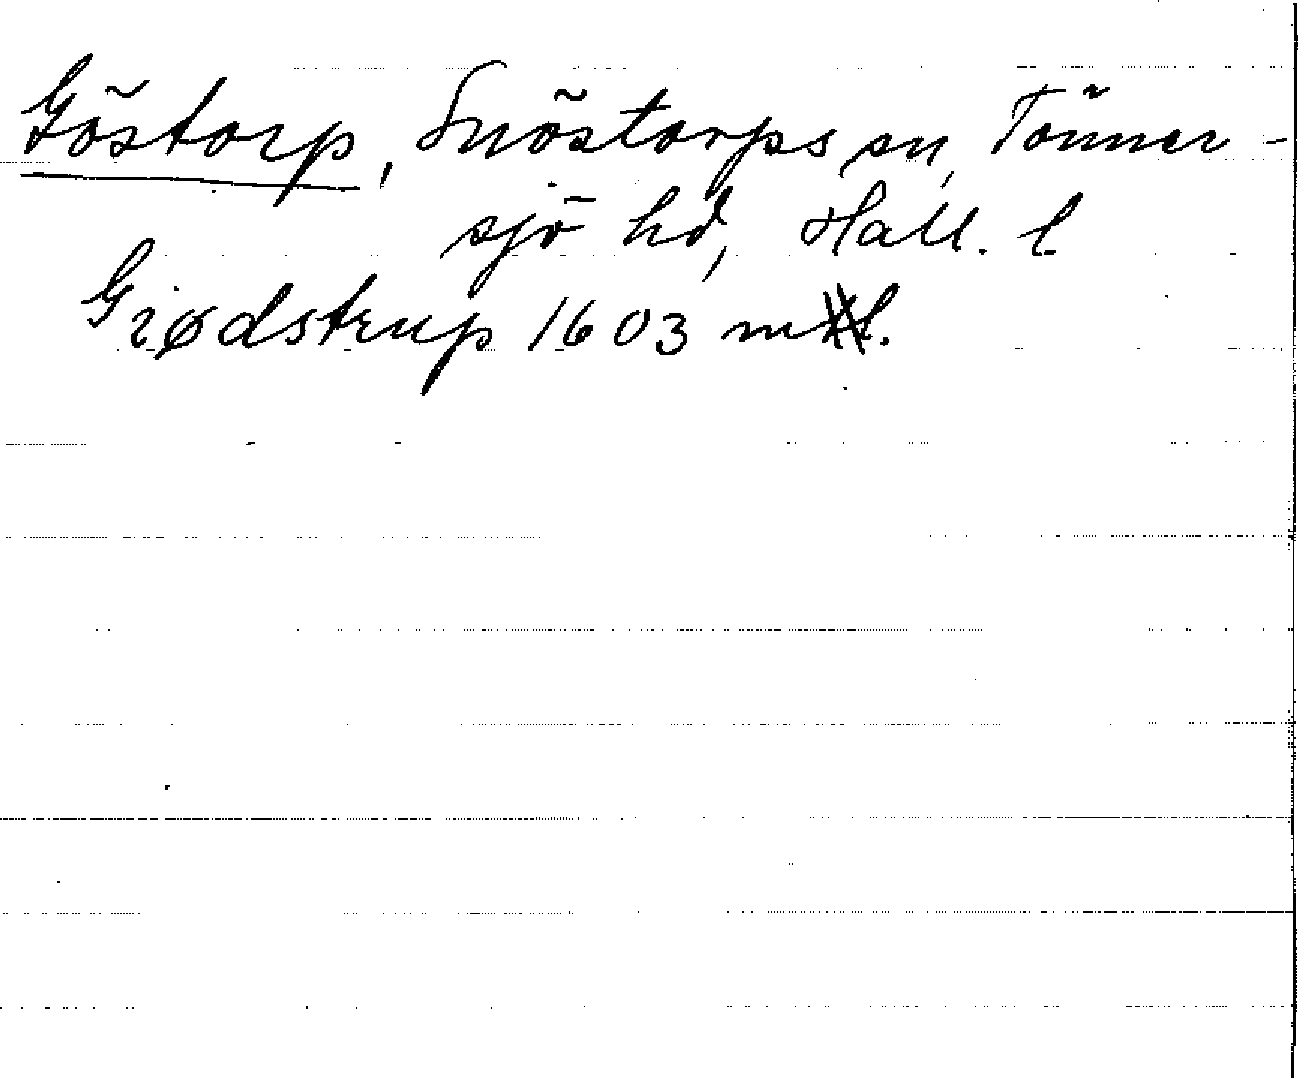 Göstorp, Snöstorps sn, Tönner-
sjö hd, Hall. l
Giødstrup 1603 mtl.